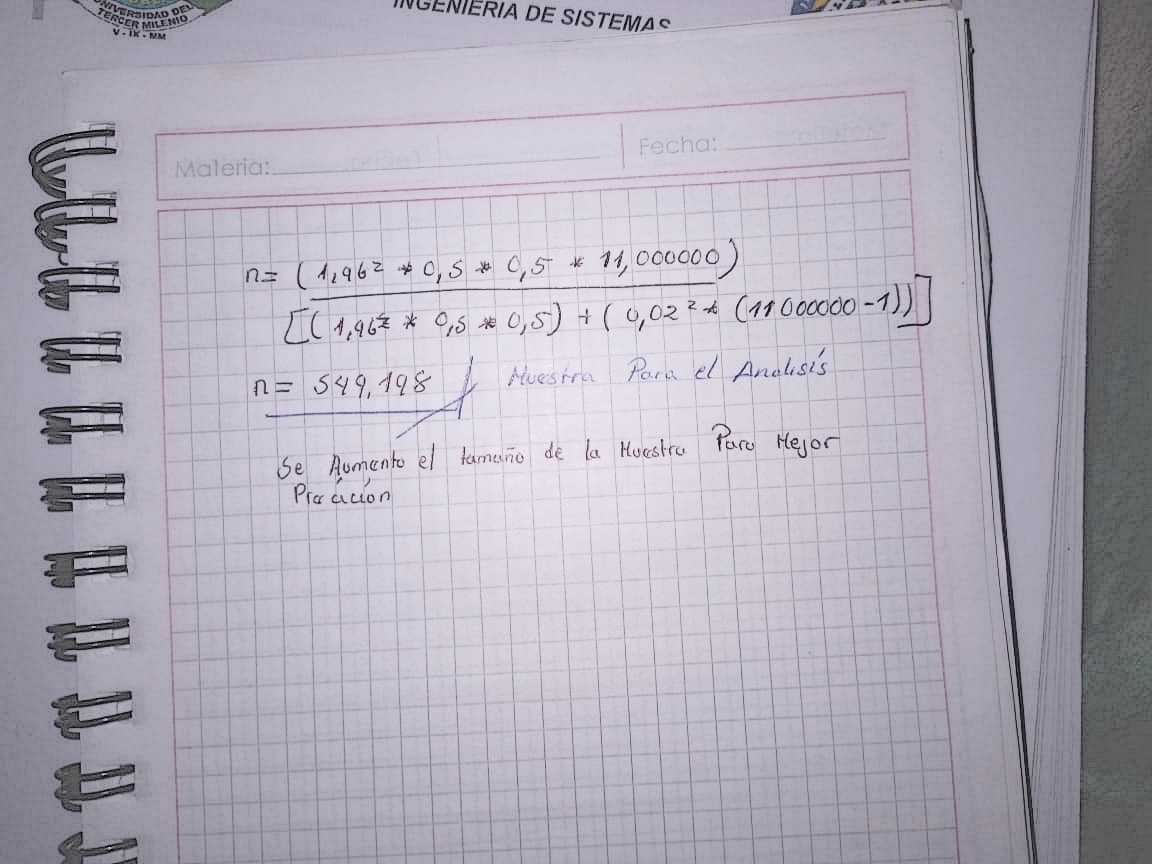 UNIVERSIDAD DEL
TERCER MILENIO
V - IX - MM
INGENIERIA DE SISTEMAS
Materia:
Fecha:
n= (1,96² * 0,5 * 0,5 * 11,000000)
[(1,96² * 0,5 * 0,5) + (0,02² * (11000000-1))]
n= 549,198 Muestra Para el Analisís
Se Aumento el tamaño de la Muestra Para Mejor